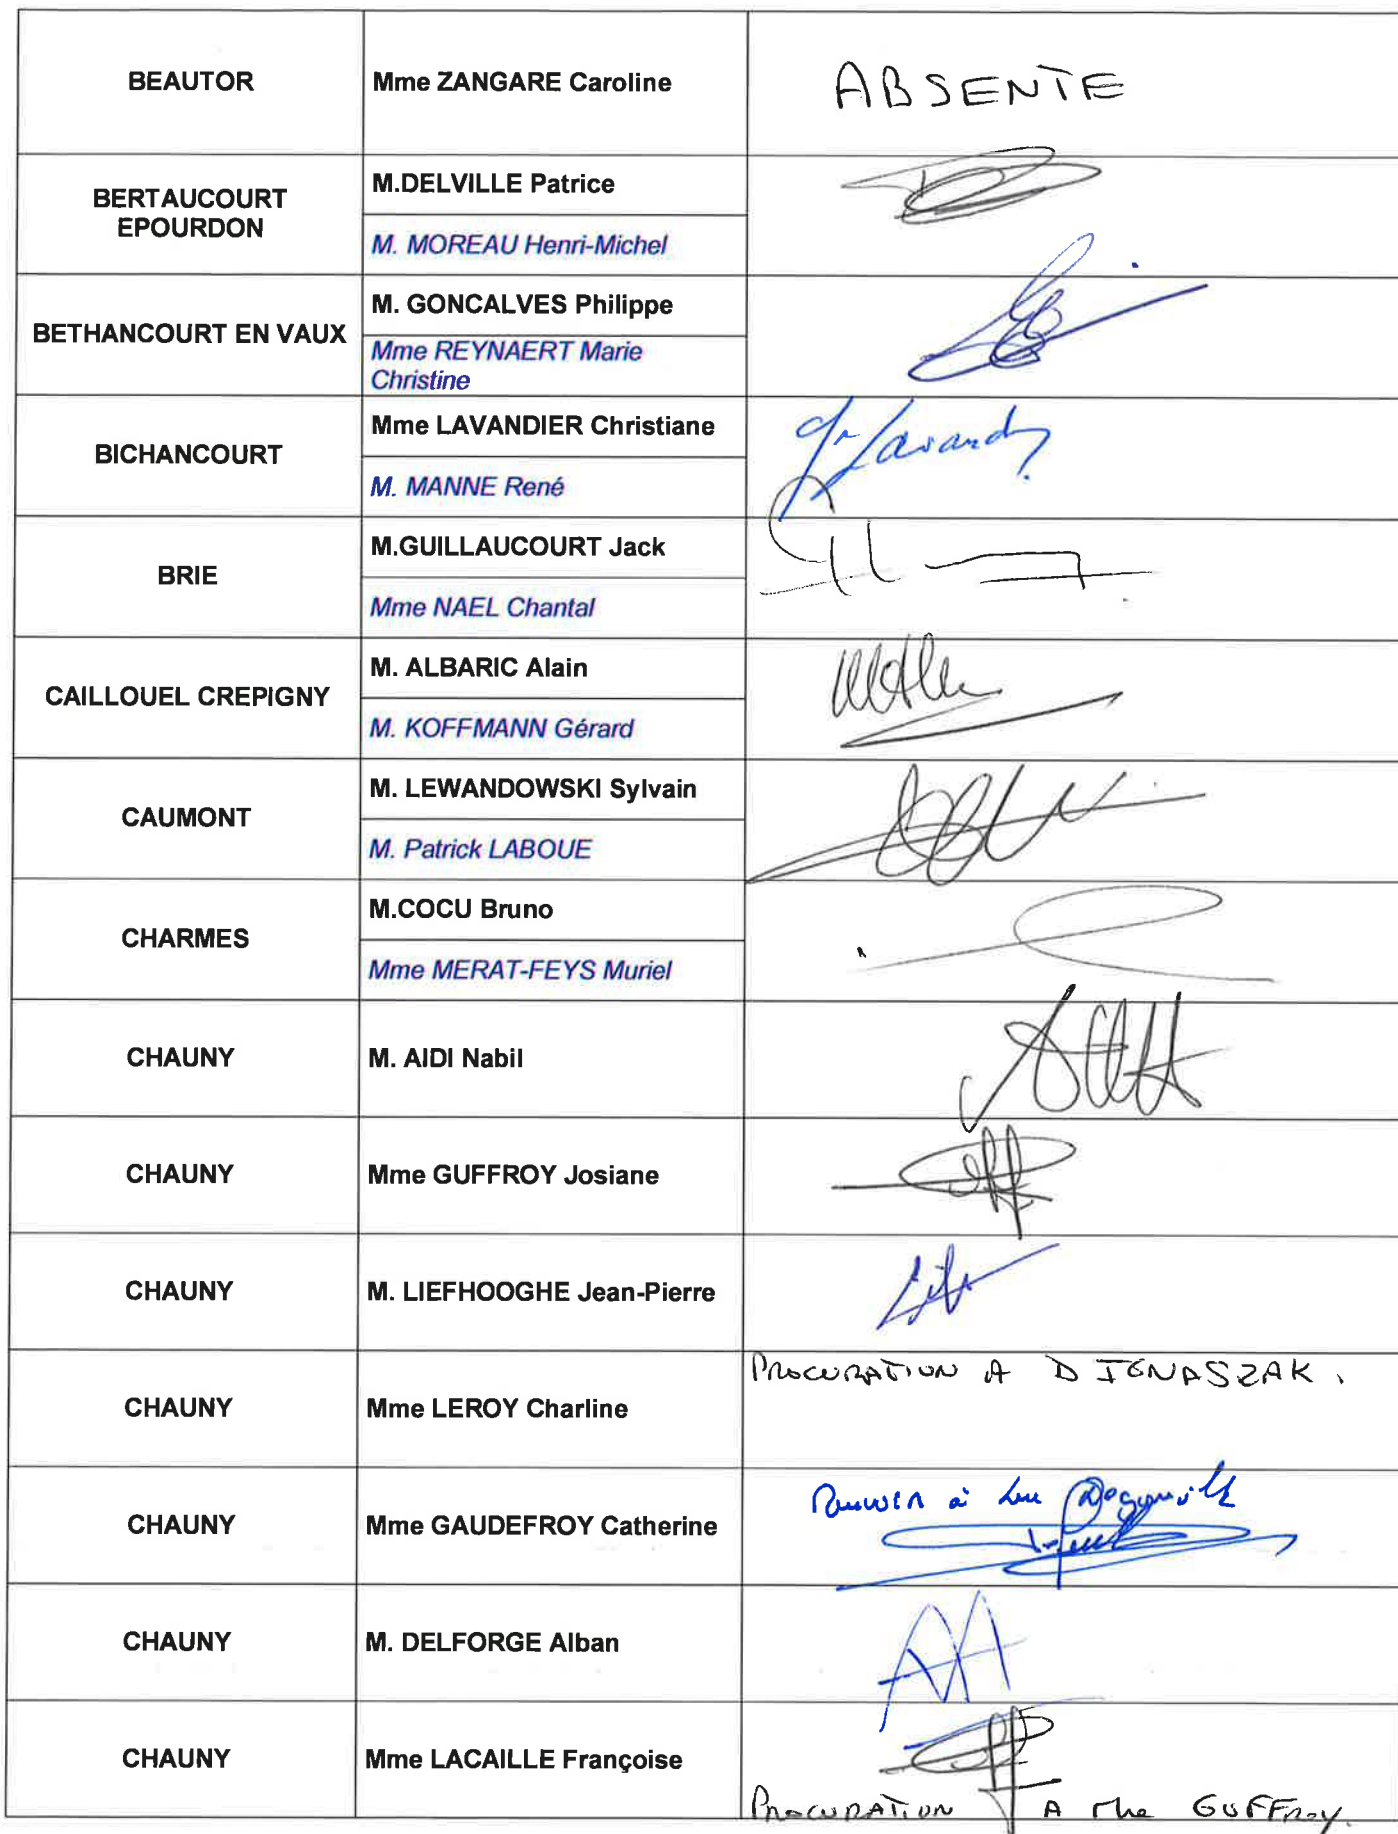 BEAUTOR
Mme ZANGARE Caroline
ABSENTE
BERTAUCOURT
EPOURDON
M.DELVILLE Patrice
M. MOREAU Henri-Michel
BETHANCOURT EN VAUX
M. GONCALVES Philippe
Mme REYNAERT Marie
Christine
BICHANCOURT
Mme LAVANDIER Christiane
M. MANNE René
BRIE
M.GUILLAUCOURT Jack
Mme NAEL Chantal
CAILLOUEL CREPIGNY
M. ALBARIC Alain
M. KOFFMANN Gérard
CAUMONT
M. LEWANDOWSKI Sylvain
M. Patrick LABOUE
CHARMES
M.COCU Bruno
Mme MERAT-FEYS Muriel
CHAUNY
M. AIDI Nabil
CHAUNY
Mme GUFFROY Josiane
CHAUNY
M. LIEFHOOGHE Jean-Pierre
CHAUNY
Mme LEROY Charline
PROCURATION A D IGNASZAK.
CHAUNY
Mme GAUDEFROY Catherine
Pouvoir à Luc
CHAUNY
M. DELFORGE Alban
CHAUNY
Mme LACAILLE Françoise
PROCURATION A Mme GUFFROY.